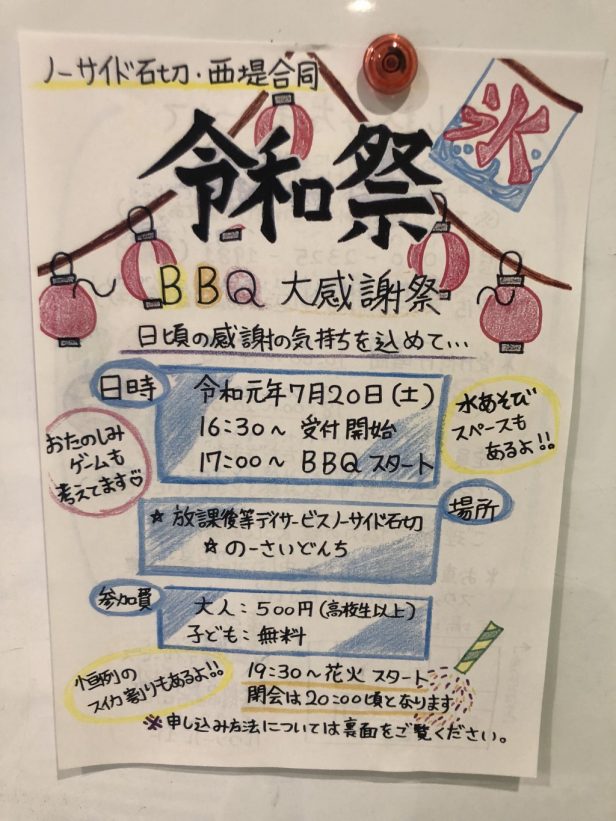 ノーサイド石切・西堤合同
氷
令和祭
BBQ 大感謝祭
日頃の感謝の気持ちを込めて…
日時
令和元年7月20日(土)
16:30〜 受付開始
17:00〜 BBQ スタート
水あそび
スペースも
あるよ!!
おたのしみ
ゲームも
考えてます♡
場所
☆ 放課後等デイサービスノーサイド石切
☆ のーさいどんち
参加費
大人:500円(高校生以上)
子ども:無料
恒例の
スイカ割りもあるよ!!
19:30〜花火 スタート
閉会は20:00頃となります
※申し込み方法については裏面をご覧ください。